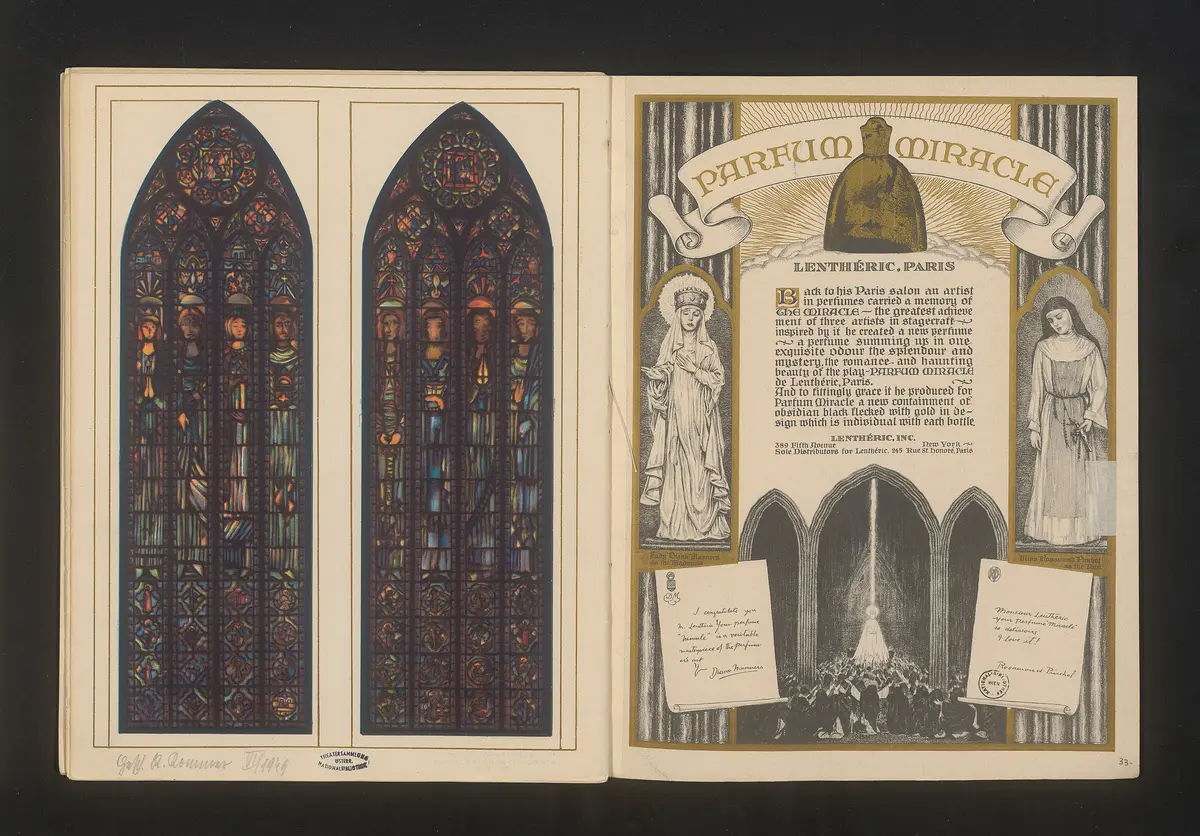 THEATERSAMMLUNG
NATIONALBIBLIOTHEK
PARFUM MIRACLE
LENTHÉRIC, PARIS
Back to his Paris salon an artist
in perfumes carried a memory of
THE MIRACLE — the greatest achieve
ment of three artists in stagecraft ~
inspired by it he created a new perfume
~ a perfume summing up in one
exquisite odour the splendour and
mystery, the romance and haunting
beauty of the play-PARFUM MIRACLE
de Lenthéric, Paris.
And to fittingly grace it he produced for
Parfum Miracle a new containment of
obsidian black flecked with gold in de-
sign which is individual with each bottle.
LENTHÉRIC, INC.
389 Fifth Avenue New York ~
Sole Distributors for Lenthéric, 245 Rue St Honoré, Paris
Lady Diana Manners
as the Madonna
Miss Rosamond Pinchot
as the Nun
DM
I congratulate you
M. Lentheric Your perfume
"Miracle" is a veritable
masterpiece of the perfume
art
Diana Manners
Monsieur Lentheric
your perfume "Miracle"
is delicious
I love it!
Rosamond Pinchot
WIEN
33-